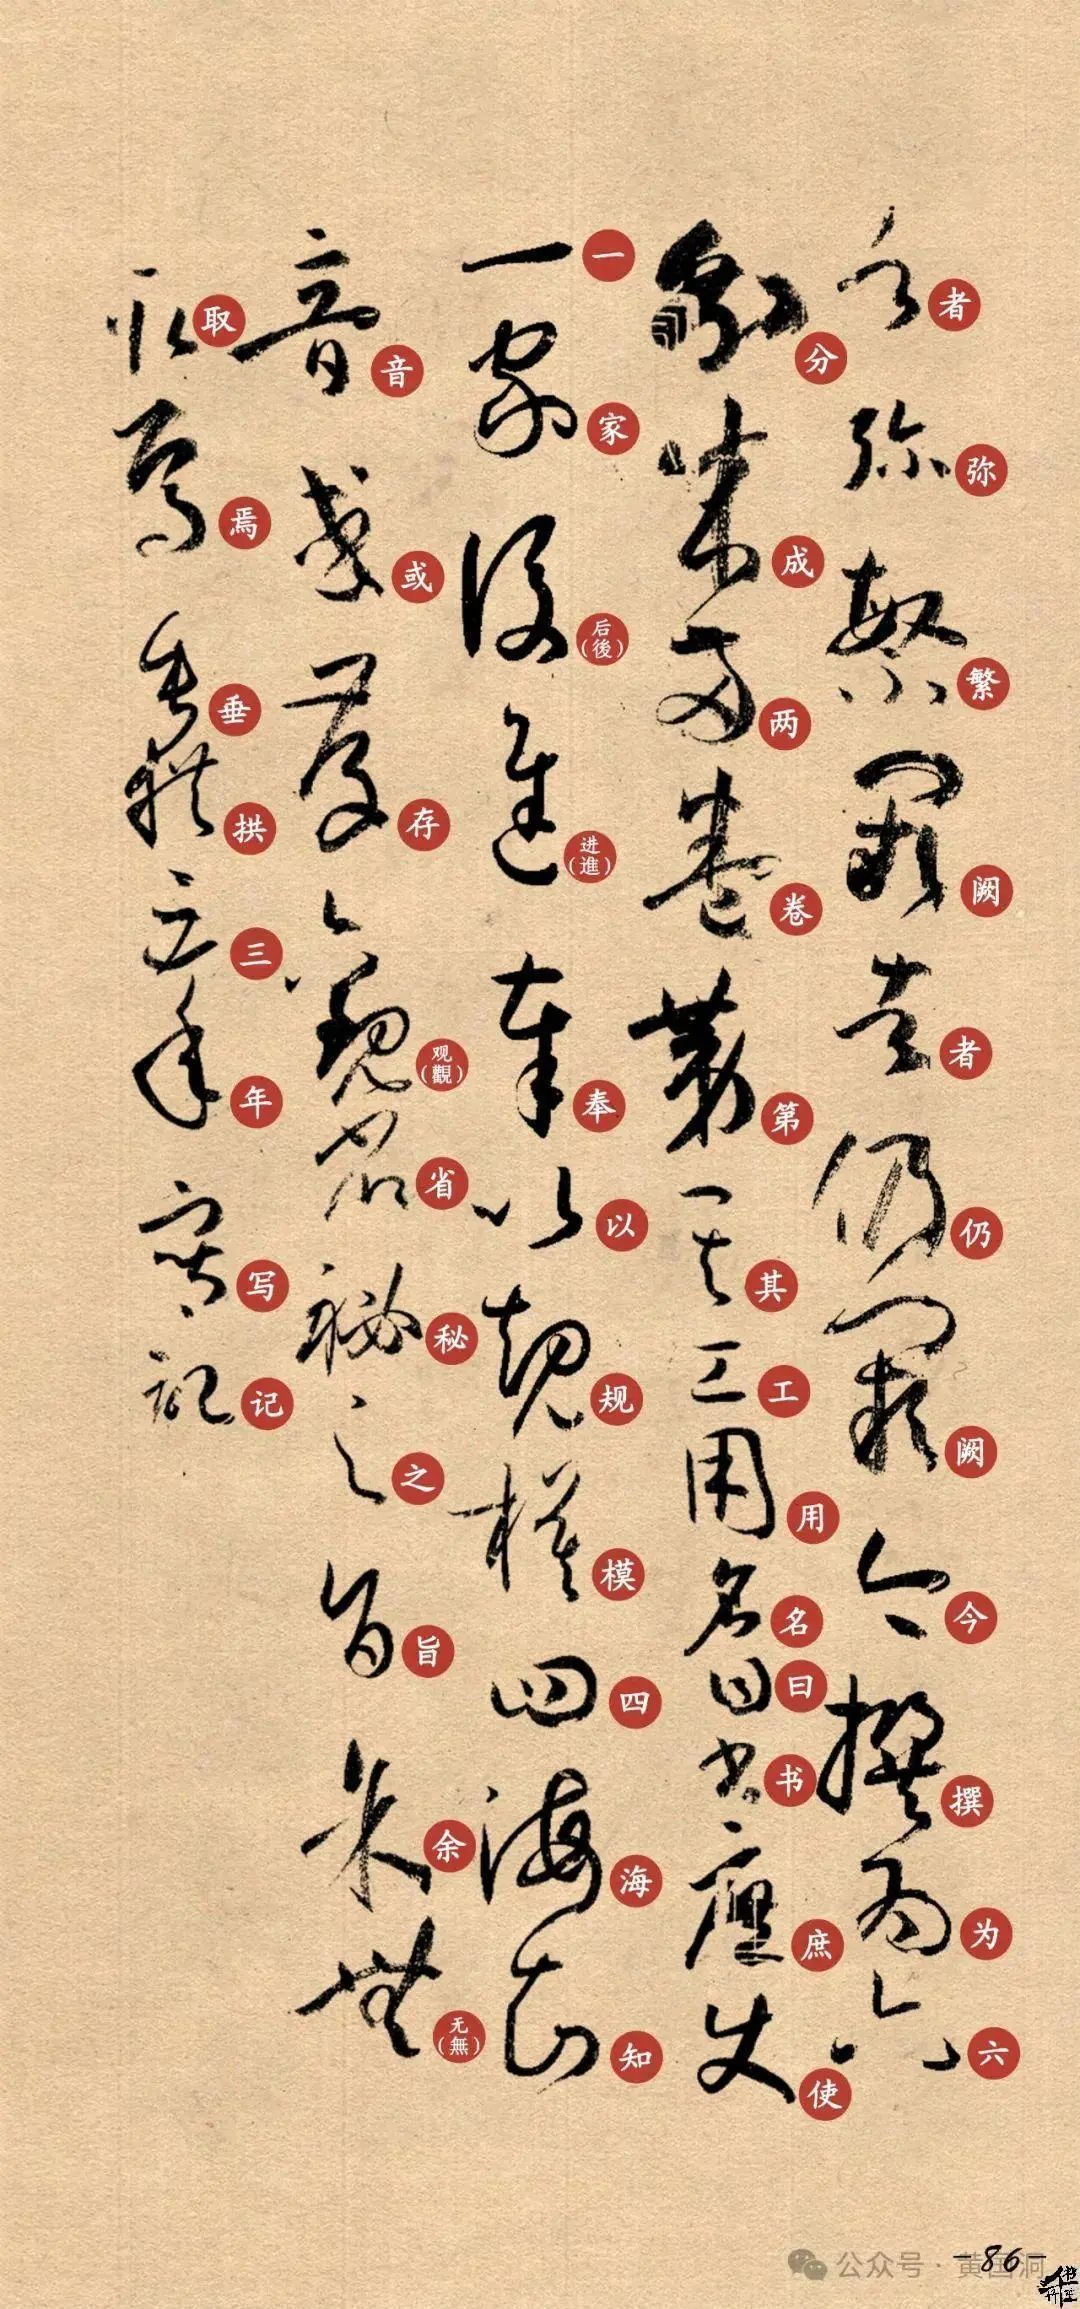 者弥繁阙者仍阙今撰为六
分成两卷第其工用名曰书庶使
一家后(後)进(進)奉以规模四海知
音或存观(觀)省秘之旨余无(無)
取焉垂拱三年写记
公众号·黄国洞
-86-